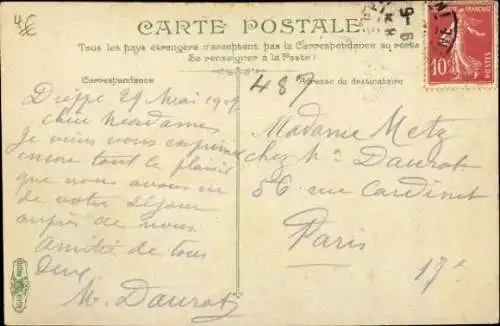 4€
CARTE POSTALE
Tous les pays étrangers n'acceptent pas la Correspondance au recto
Se renseigner à la Poste
Correspondance
Adresse du destinataire
487
10c
Dieppe 29 Mai 190
chère Mesdames
Je viens vous exprimer
encore tout le plaisir
que nous avons eu
de votre séjour
auprès de nous
Amitié de tous
Deux
M. Daurat
Madame Metz
chez Mr Daurat
56 rue Cardinet
Paris
17e